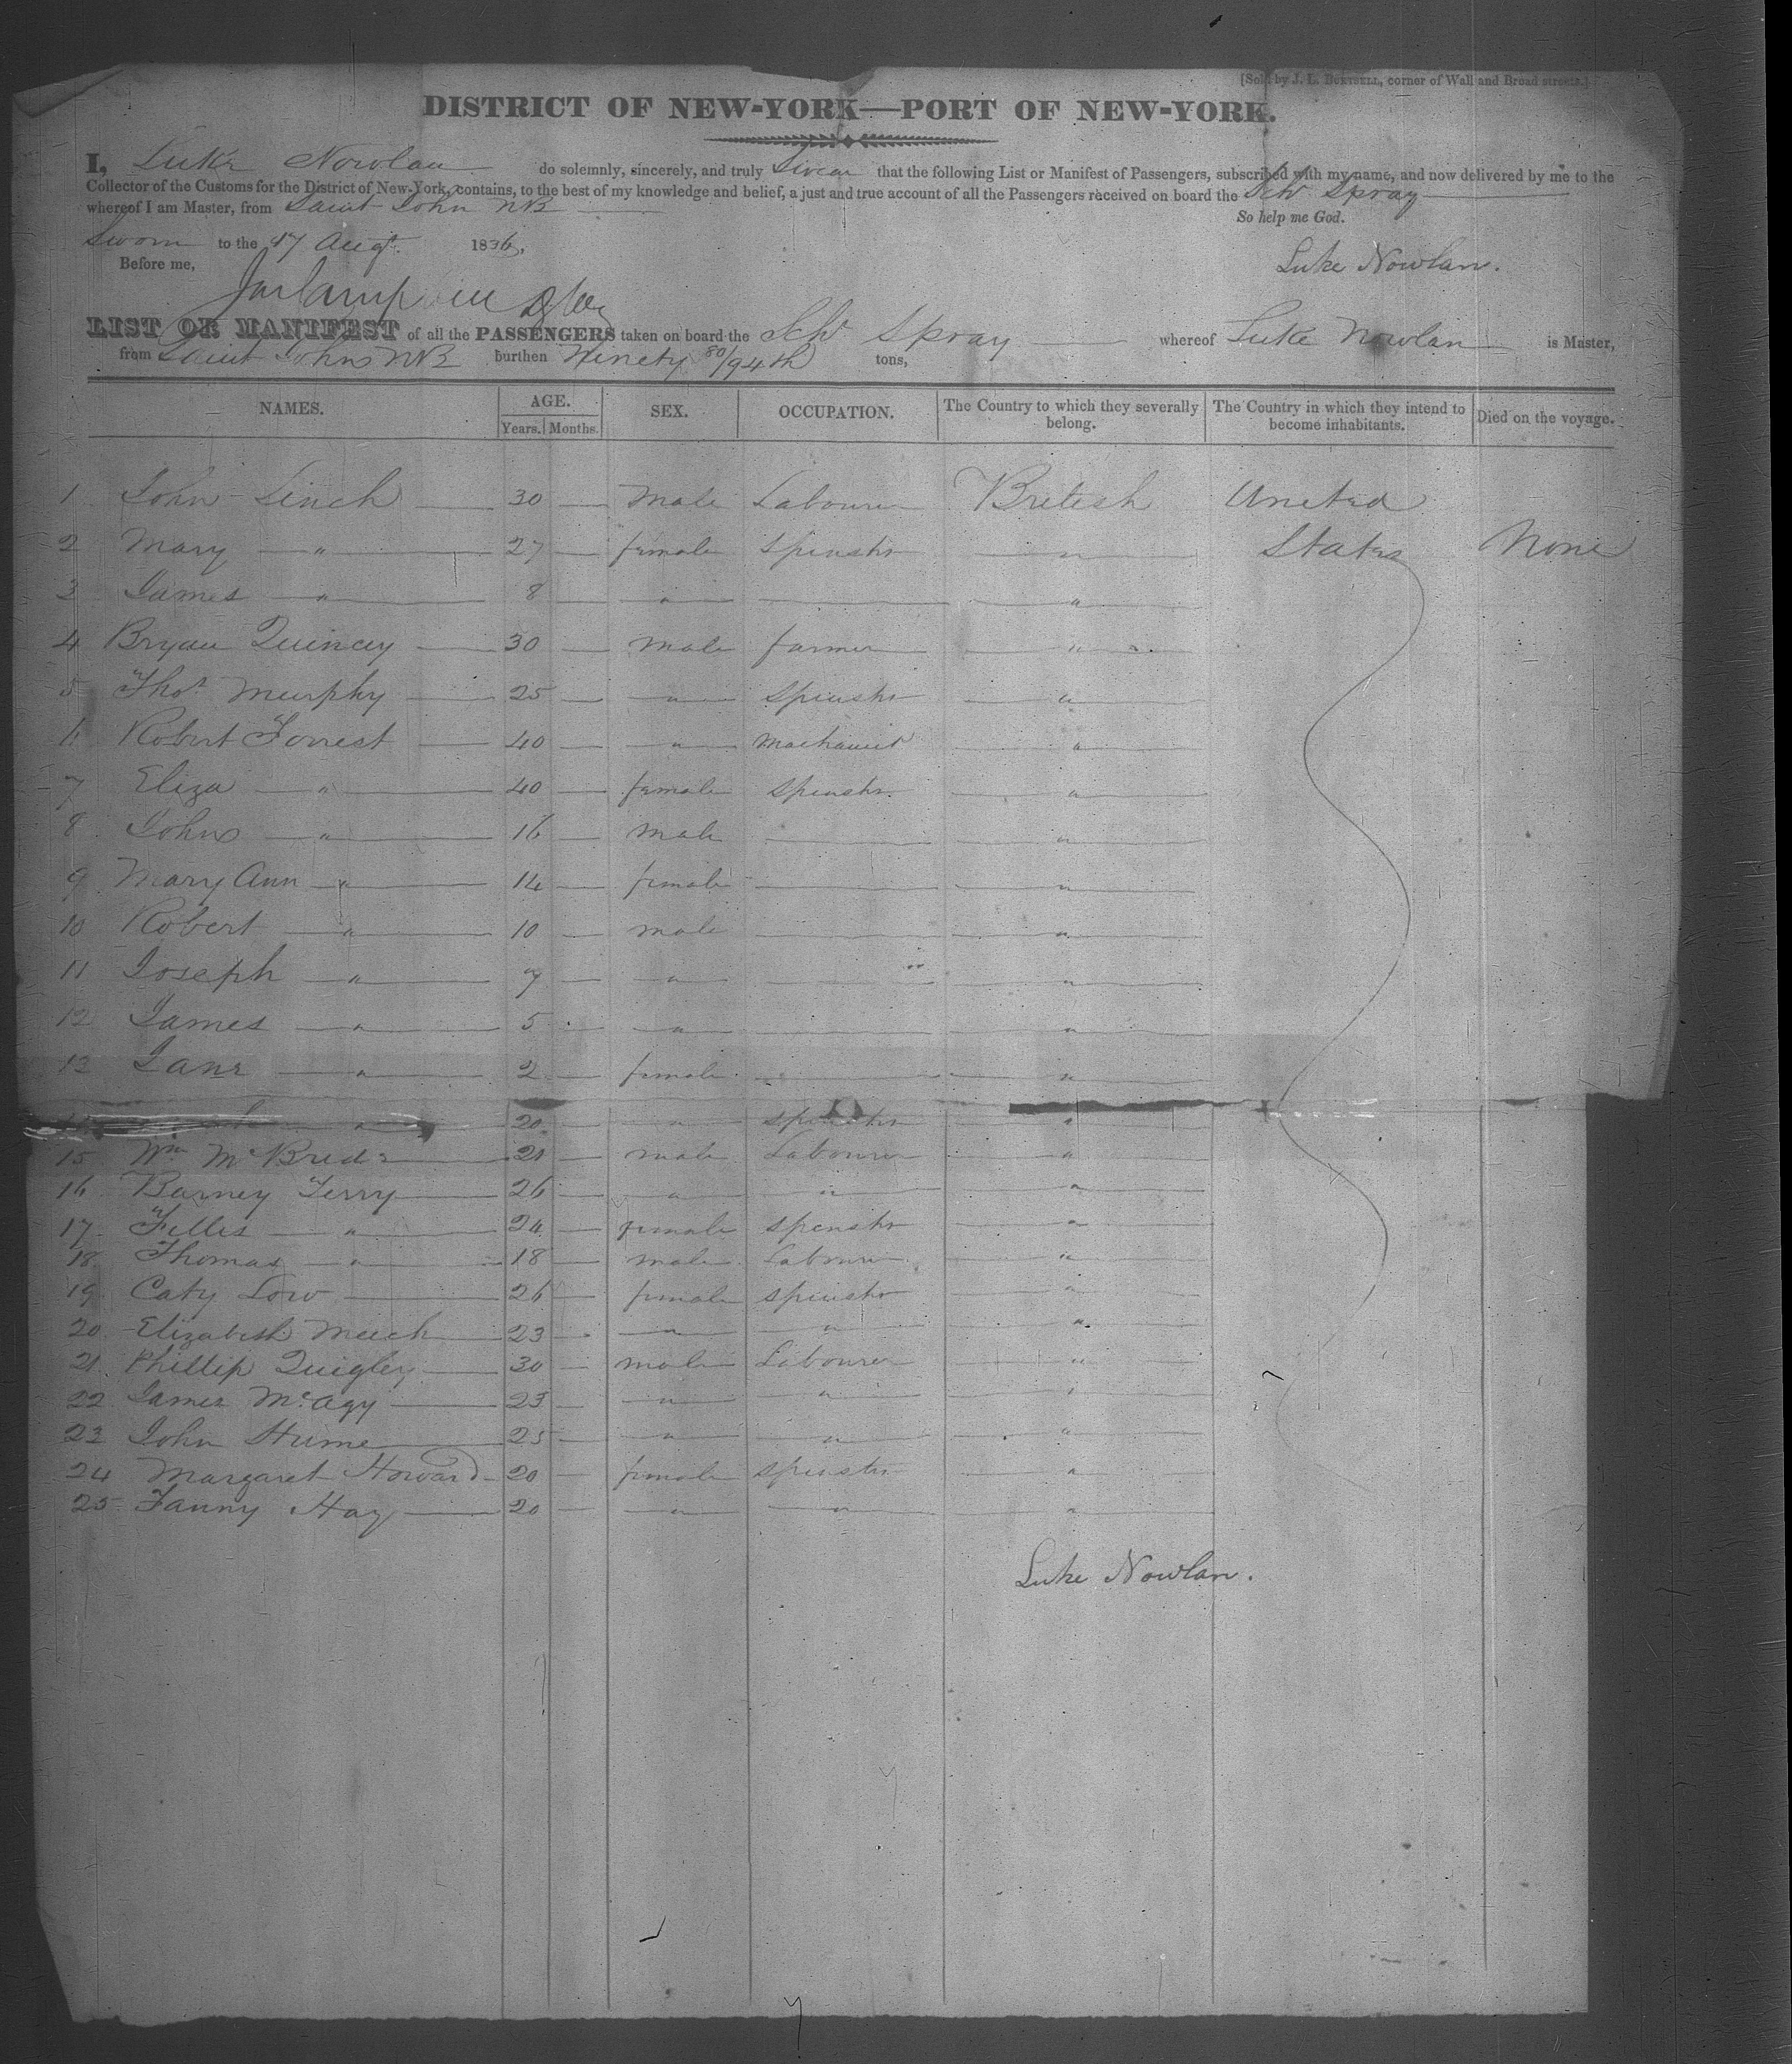 [Sold by J. L. BURTSELL, corner of Wall and Broad streets.]
DISTRICT OF NEW-YORK—PORT OF NEW-YORK.
I, Luke Nowlan do solemnly, sincerely, and truly Swear that the following List or Manifest of Passengers, subscribed with my name, and now delivered by me to the
Collector of the Customs for the District of New-York, contains, to the best of my knowledge and belief, a just and true account of all the Passengers received on board the Schr Spray
whereof I am Master, from Saint John NB
So help me God.
Sworn to the 17 Augt. 1836,
Before me,
Luke Nowlan.
LIST OR MANIFEST of all the PASSENGERS taken on board the Schr Spray whereof Luke Nowlan is Master,
from Saint Johns NB burthen Ninety 80/94th tons,
NAMES. AGE. Years. Months. SEX. OCCUPATION. The Country to which they severally belong. The Country in which they intend to become inhabitants. Died on the voyage.
1 John Linch 30 male Labourer British United
2 Mary " 27 female Spinstr " States None
3 James " 8 " "
4 Bryan Quincey 30 male farmer "
5 Thos Murphy 25 " Spinstr "
6 Robert Forrest 40 " "
7 Eliza " 40 female Spinstr. "
8 John " 16 male "
9 Mary Ann " 14 female "
10 Robert " 10 male "
11 Joseph " 7 " "
12 James " 5 " "
13 Jane " 2 female "
" 20 " spinstr "
15 Wm McBride 21 male Labourer "
16 Barney Terry 26 " " "
17 Fillis " 24 female spenstr "
18 Thomas " 18 male Labourer "
19 Caty Low 26 female spinstr "
20 Elizabeth 23 " " "
21 Phillip Quigley 30 male Labourer "
22 James McAgy 23 " " "
23 John Hume 25 " " "
24 Margaret Howard 20 female spinstr "
25 Fanny Hay 20 " " "
Luke Nowlan.